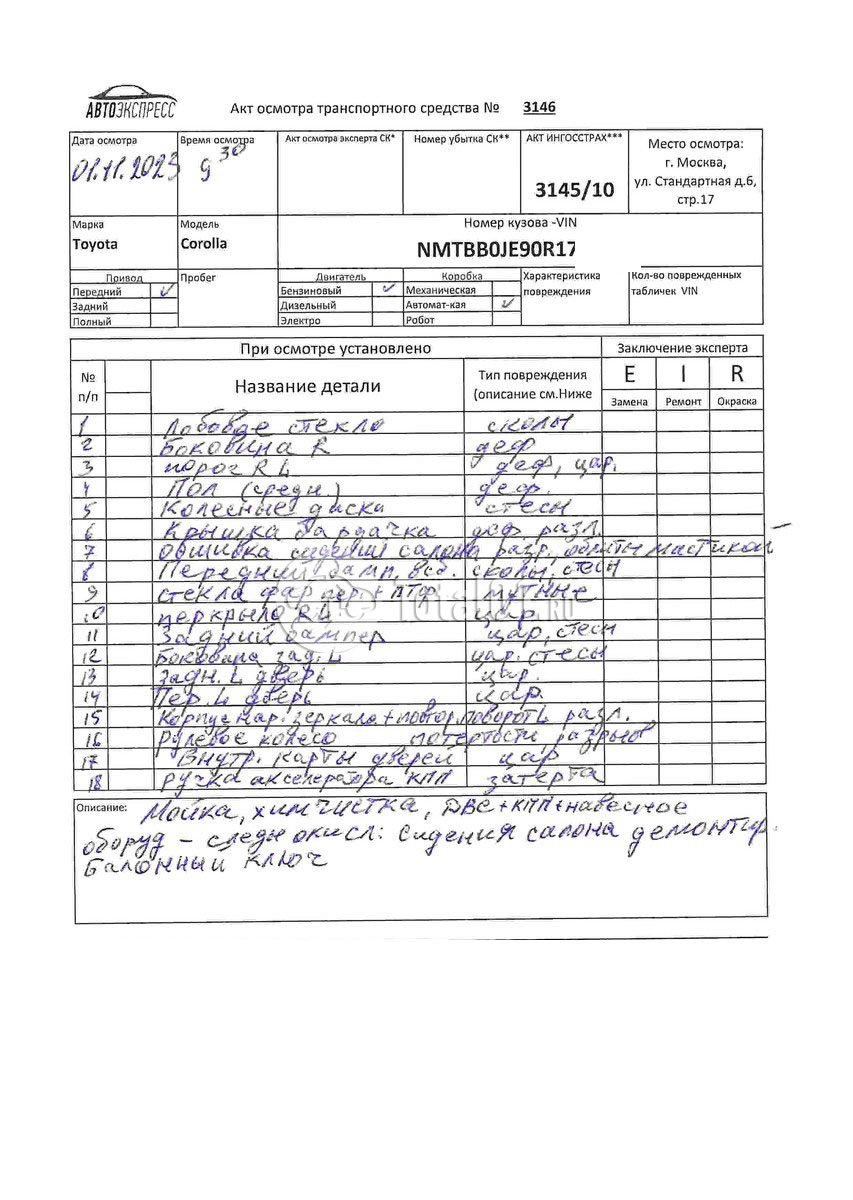 АВТОЭКСПРЕСС
Акт осмотра транспортного средства № 3146
Дата осмотра Время осмотра Акт осмотра эксперта СК* Номер убытка СК** АКТ ИНГОССТРАХ*** Место осмотра:
г. Москва,
ул. Стандартная д.6,
стр.17
01.11.2023 9 30 3145/10
Марка Модель Номер кузова -VIN
Toyota Corolla NMTBB0JE90R17
Привод Пробег Двигатель Коробка Характеристика повреждения Кол-во поврежденных табличек VIN
Передний Бензиновый Механическая
Задний Дизельный Автомат-кая
Полный Электро Робот
При осмотре установлено Заключение эксперта
№ п/п Название детали Тип повреждения (описание см.Ниже E I R
Замена Ремонт Окраска
1 Лобовое стекло сколы
2 Боковина R деф
3 порог R L деф, цар.
4 Пол (средн.) деф.
5 Колесные диски стесы
6 Крышка бардачка деф разл.
7 Обшивка сидений салона разр, облиты мастикой
8 Передний бамп. всб. сколы, стесы
9 стекла фар пер + ПТФ мутные
10 пер крыло R L цар
11 Задний бампер цар, стесы
12 Боковина зад. L цар. стесы
13 задн. L дверь цар.
14 Пер. L дверь цар
15 Корпус нар. зеркала + повтор. поворот L разл.
16 Рулевое колесо потертости разрыв
17 Внутр. карты дверей цар
18 Ручка акселератора КПП затерта
Описание: Мойка, химчистка, ДВС + КПП + навесное
оборуд – следы окисл: Сидения салона демонтир.
Балонный ключ
Total01.RU